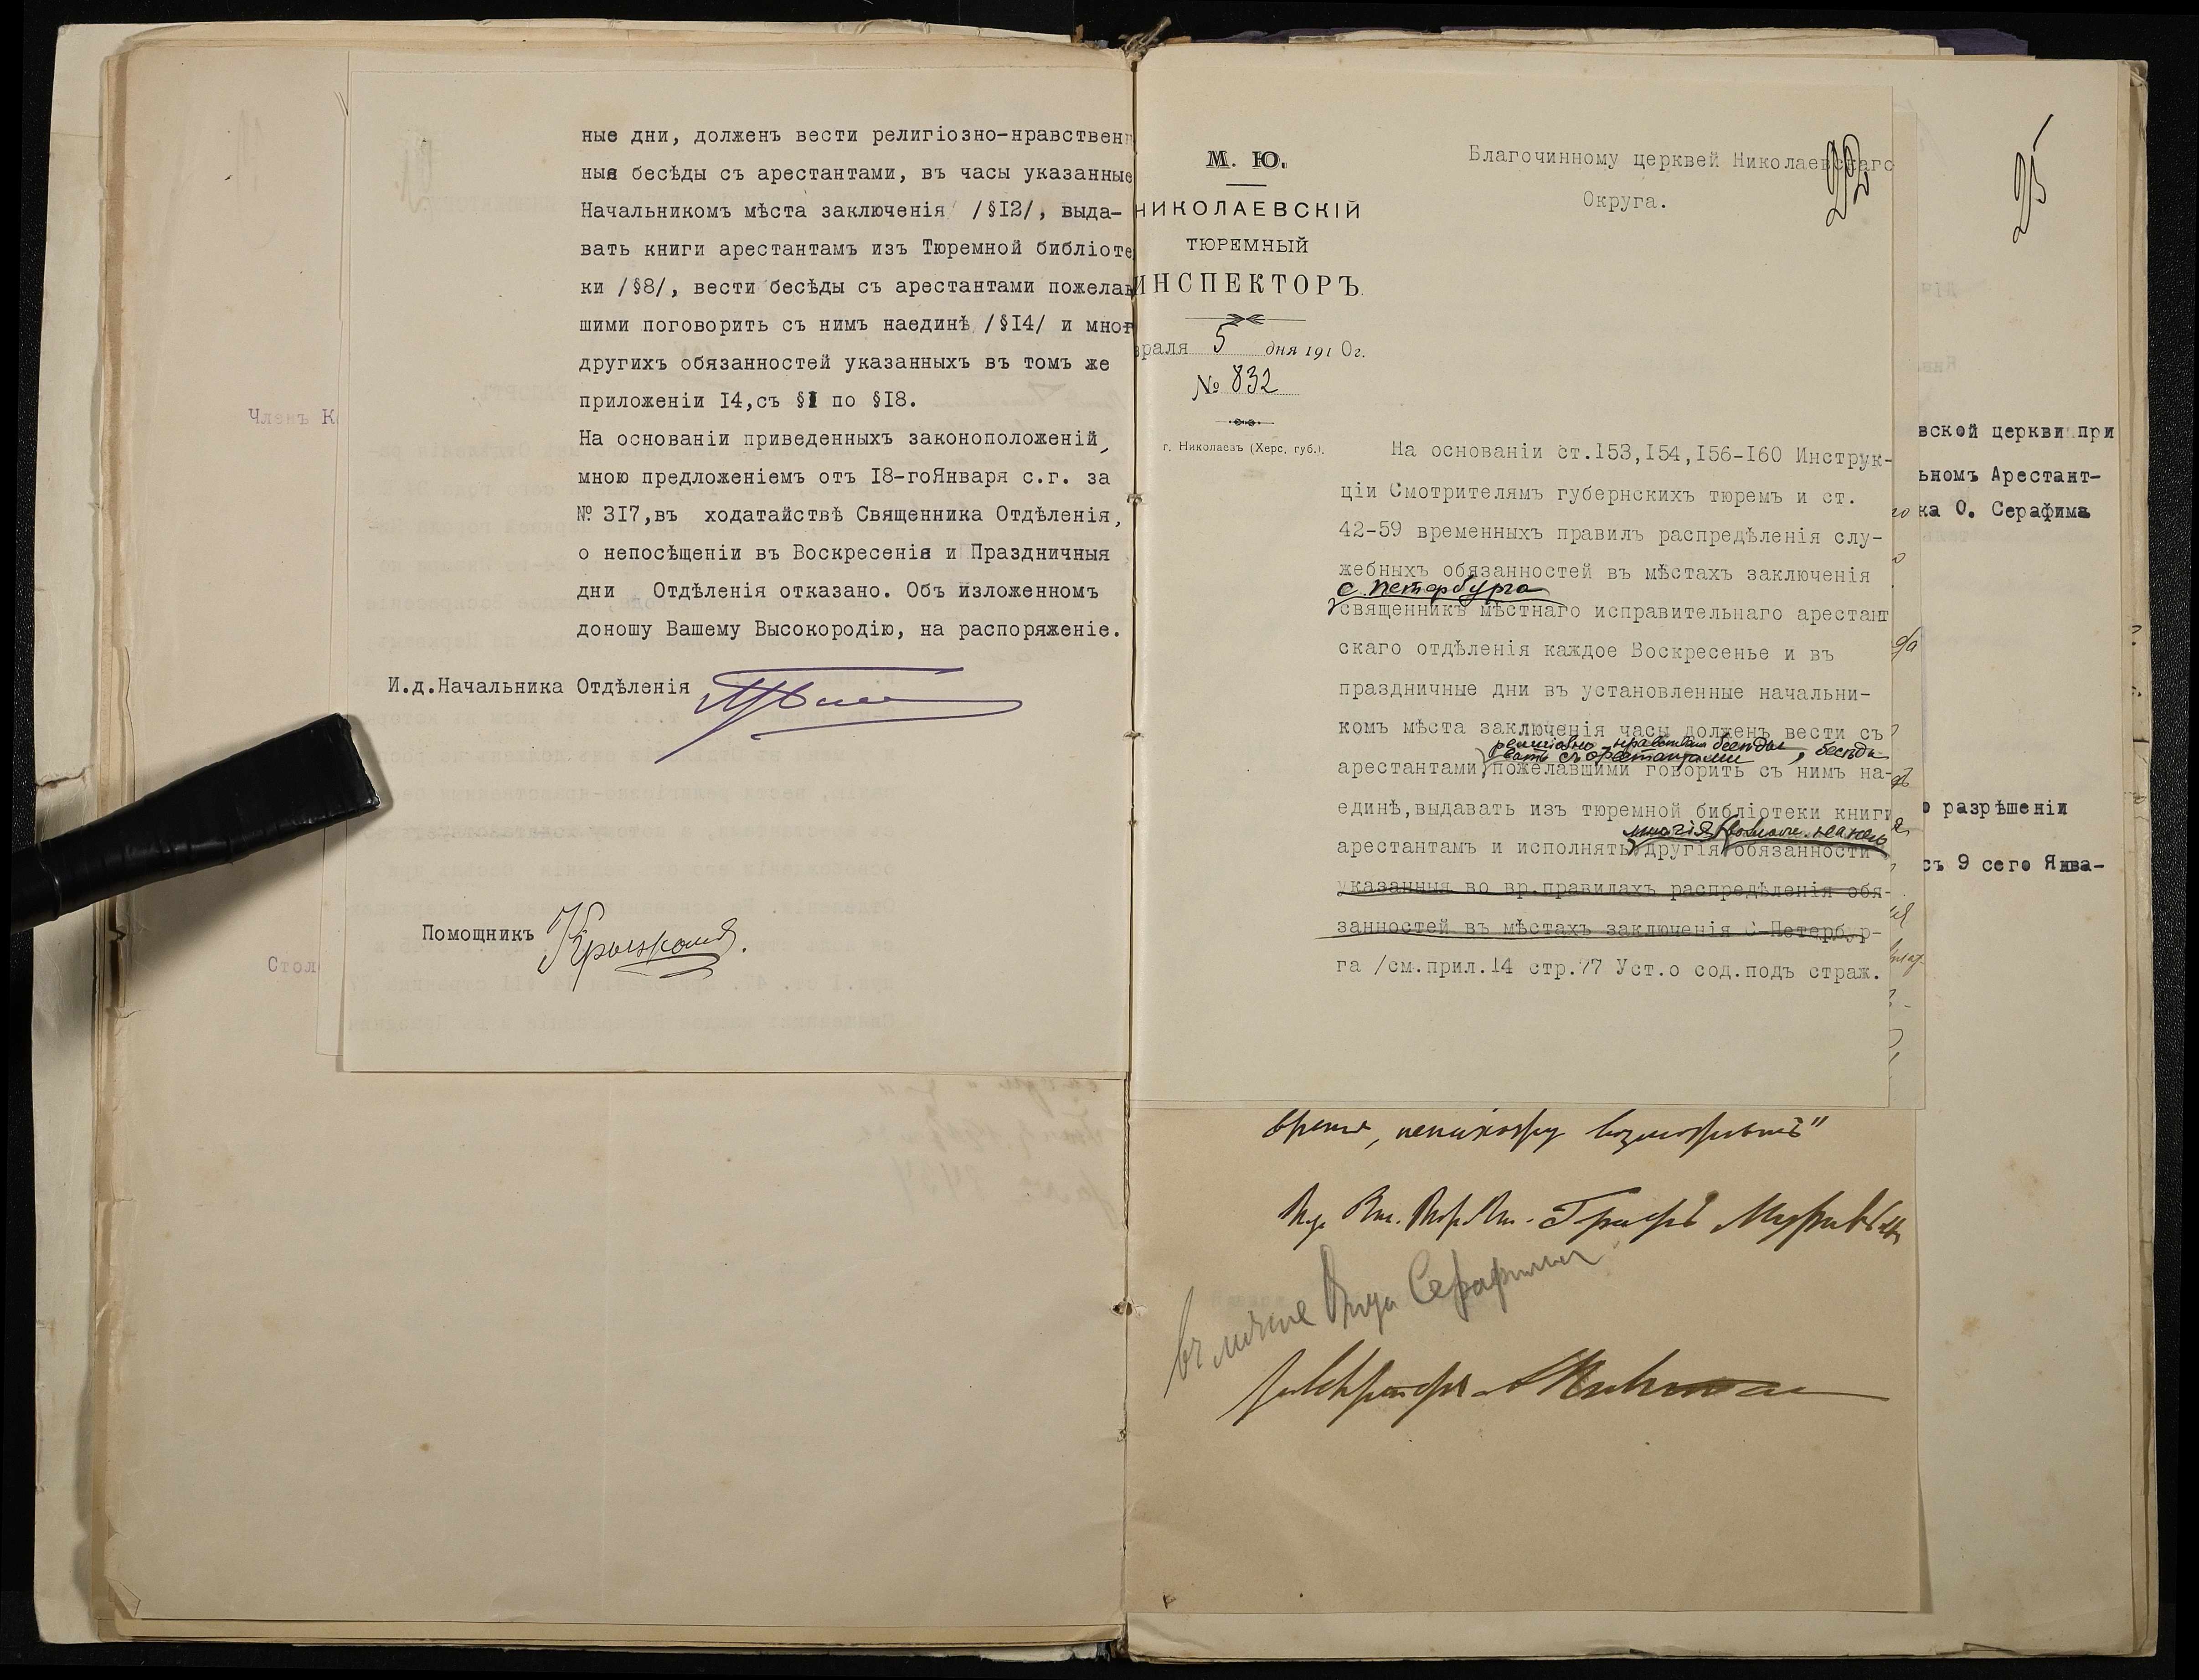 ные дни, долженъ вести религіозно-нравствен
ныя бесѣды съ арестантами, въ часы указанные
Начальникомъ мѣста заключенія /§I2/, выда-
вать книги арестантамъ изъ Тюремной библіоте
ки /§8/, вести бесѣды съ арестантами пожелав
шими поговорить съ нимъ наединѣ /§I4/ и мног
другихъ обязанностей указанныхъ въ томъ же
приложеніи I4,съ §I по §I8.
На основаніи приведенныхъ законоположеній,
мною предложеніемъ отъ I8-гоЯнваря с.г. за
№ 3I7,въ ходатайствѣ Священника Отдѣленія,
о непосѣщеніи въ Воскресенія и Праздничныя
дни Отдѣленія отказано. Объ изложенномъ
доношу Вашему Высокородію, на распоряженіе.
И.д.Начальника Отдѣленія
Помощникъ
Членъ К
Стол
М. Ю.
НИКОЛАЕВСКІЙ
ТЮРЕМНЫЙ
ИНСПЕКТОРЪ.
враля 5 дня 1910г.
№ 832
г. Николаевъ (Херс. губ.).
Благочинному церквей Николаевскаго
Округа.
92
95
На основаніи ст.153,I54,I56-I60 Инструк-
ціи Смотрителямъ губернскихъ тюремъ и ст.
42-59 временныхъ правилъ распредѣленія слу-
жебныхъ обязанностей въ мѣстахъ заключенія
С. Петербурга
священникъ мѣстнаго исправительнаго арестант
скаго отдѣленія каждое Воскресенье и въ
праздничные дни въ установленные начальни-
комъ мѣста заключенія часы долженъ вести съ
религіозно-нравственныя бесѣды, бесѣдо
вать съ арестантами
арестантами пожелавшими говорить съ нимъ на-
единѣ,выдавать изъ тюремной библіотеки книги
многія
арестантамъ и исполнять другія обязанности
указанныя во вр.правилахъ распредѣленія обя-
занностей въ мѣстахъ заключенія С-Петербур-
га /см.прил.14 стр.77 Уст.о сод.подъ страж.
вской церкви при
ьномъ Арестант-
ка О. Серафима
о разрѣшеніи
съ 9 сего Янва-
время,
Графъ Муравьевъ
Серафима